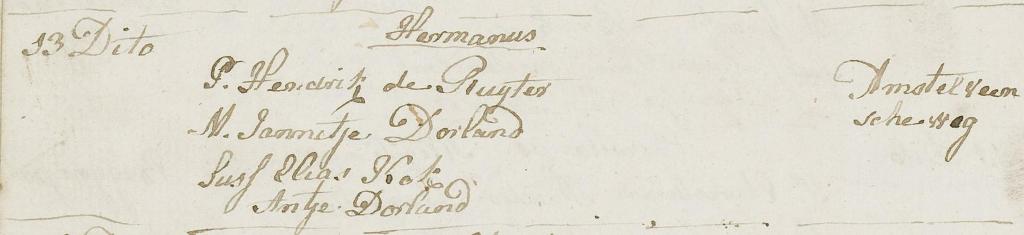 13 Dito
Hermanus
P. Hendrik de Ruyter
M. Jannitje Dorland
Susc Elias Kok
Antje Dorland
Amstelveen
sche weg